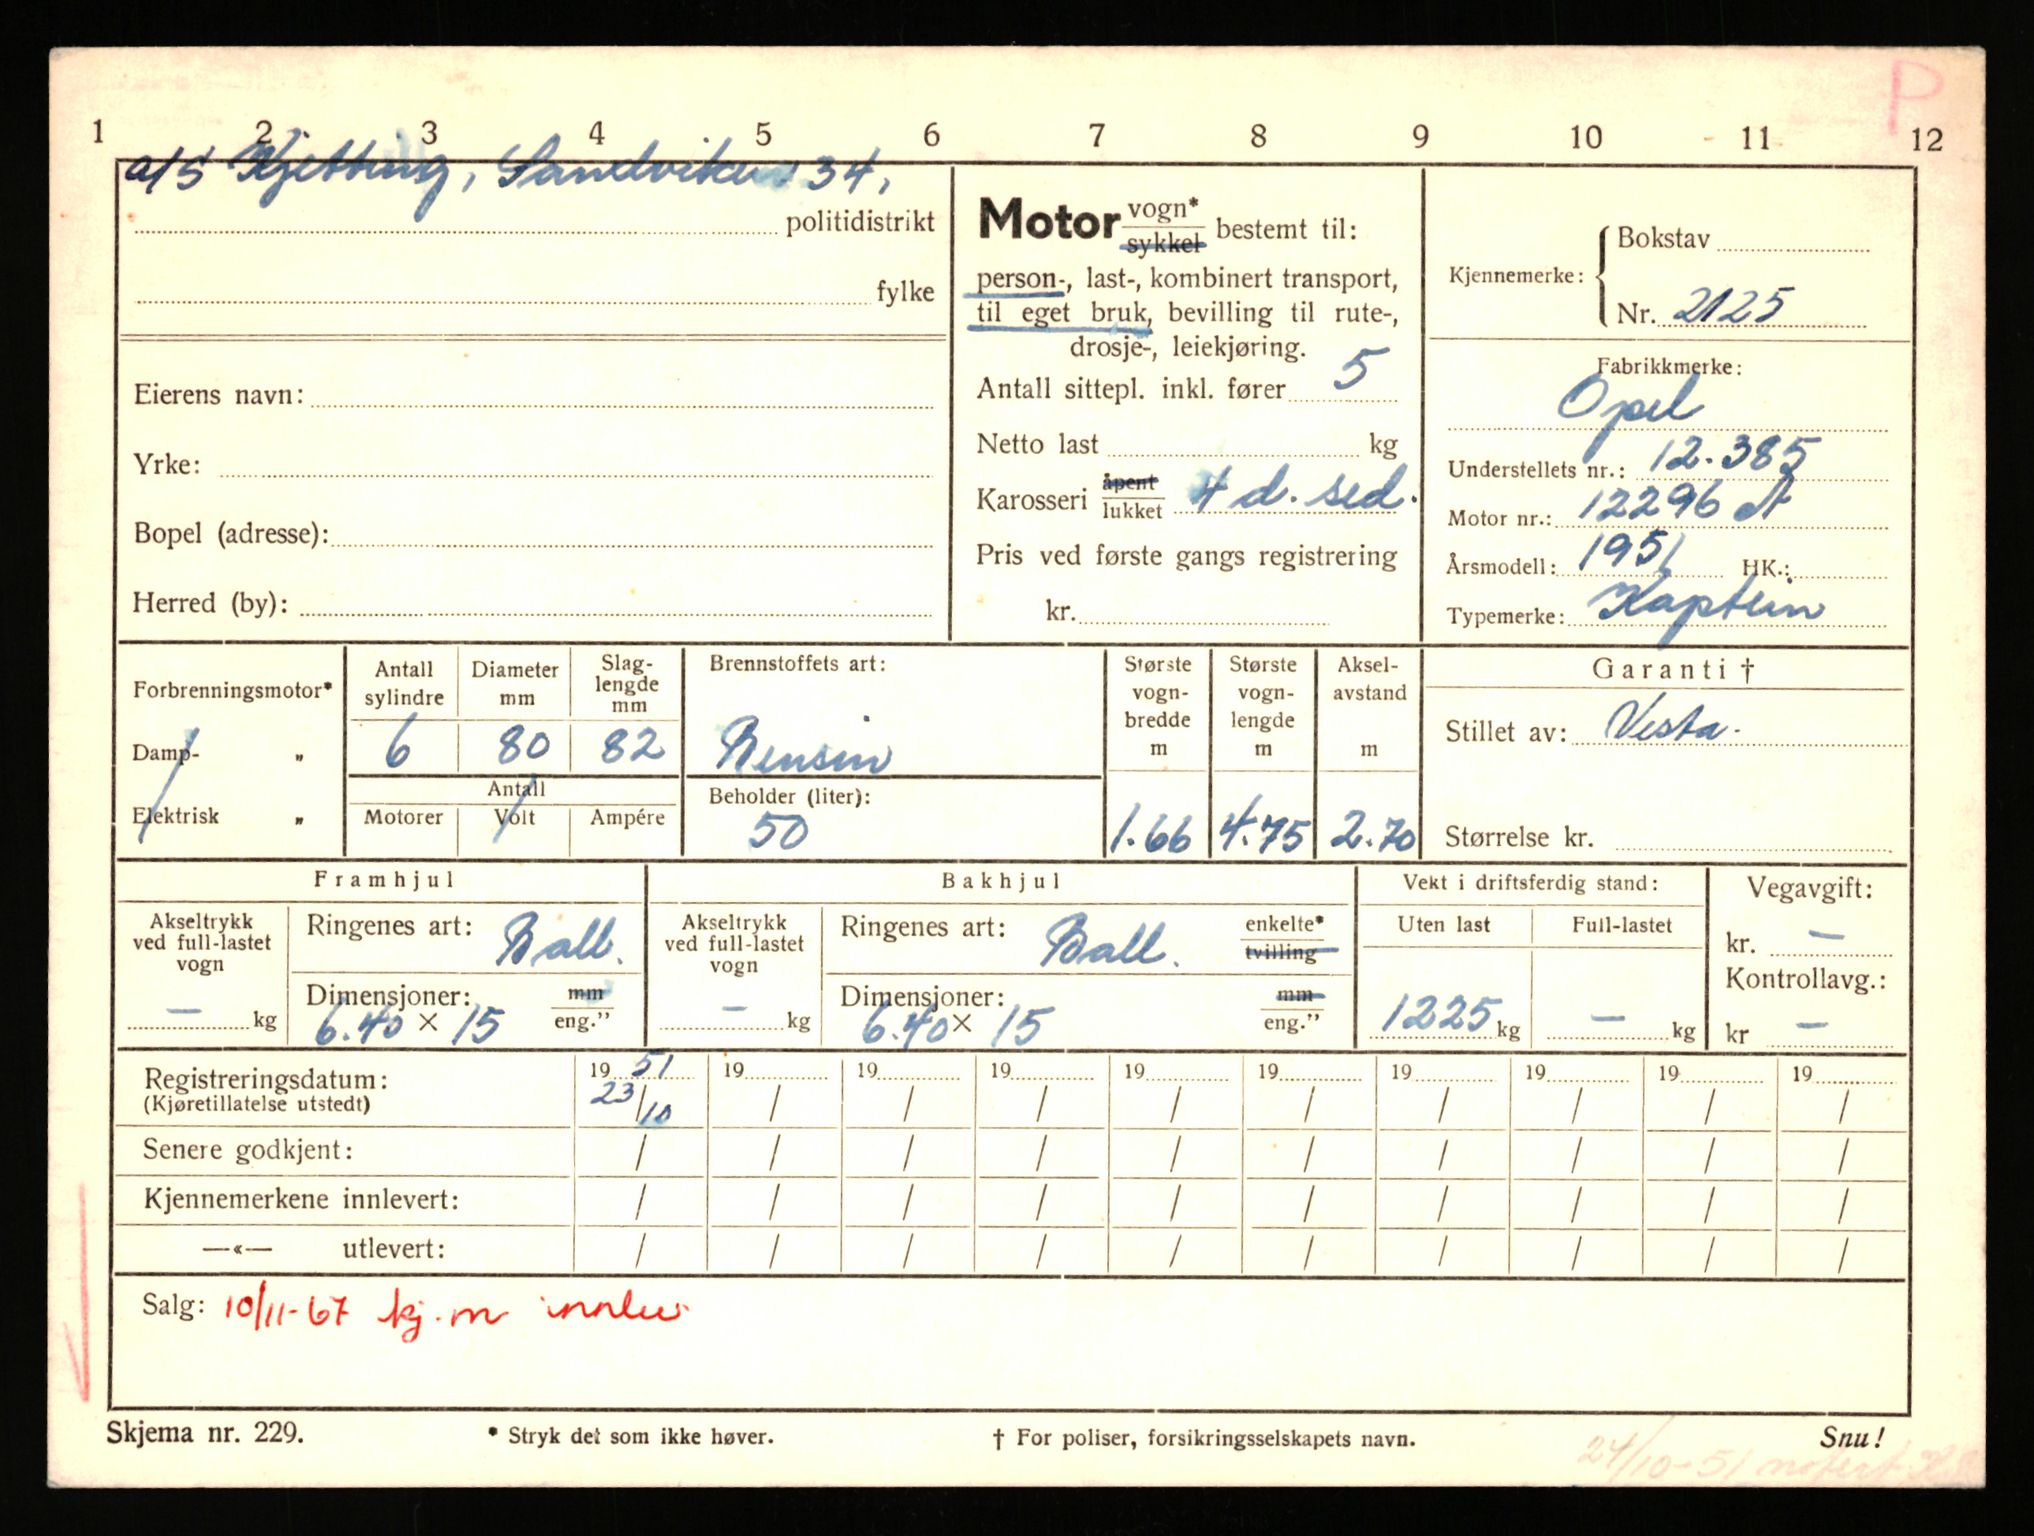 P
1 2 3 4 5 6 7 8 9 10 11 12
a/s Kjetting, Sandviken 34,
politidistrikt
fylke
Eierens navn:
Yrke:
Bopel (adresse):
Herred (by):
Motor vogn* sykkel bestemt til:
person-, last-, kombinert transport,
til eget bruk, bevilling til rute-,
drosje-, leiekjøring.
Antall sittepl. inkl. fører 5
Netto last kg
Karosseri åpent lukket 4 d. sed.
Pris ved første gangs registrering
kr.
Kjennemerke: Bokstav
Nr. 2125
Fabrikkmerke:
Opel
Understellets nr.: 12.385
Motor nr.: 12296 A
Årsmodell: 1951 HK.:
Typemerke: Kaptein
Forbrenningsmotor*
Damp- "
Elektrisk "
Antall sylindre
6
Diameter mm
80
Slag-lengde mm
82
Antall
Motorer Volt Ampére
Brennstoffets art:
Bensin
Beholder (liter):
50
Største vogn-bredde m
1.66
Største vogn-lengde m
4.75
Aksel-avstand m
2.70
Garanti †
Stillet av: Vesta.
Størrelse kr.
Framhjul
Akseltrykk ved full-lastet vogn
— kg
Ringenes art: Ball.
Dimensjoner: mm
6.40 × 15 eng."
Bakhjul
Akseltrykk ved full-lastet vogn
— kg
Ringenes art: Ball. enkelte* tvilling
Dimensjoner: mm
6.40 × 15 eng."
Vekt i driftsferdig stand:
Uten last Full-lastet
1225 kg — kg
Vegavgift:
kr. —
Kontrollavg.:
kr —
Registreringsdatum: 19 51 19 19 19 19 19 19 19 19 19
(Kjøretillatelse utstedt) 23/10 / / / / / / / / /
Senere godkjent: / / / / / / / / / /
Kjennemerkene innlevert: / / / / / / / / / /
—«— utlevert: / / / / / / / / / /
Salg: 10/11-67 kj.m innlev
Skjema nr. 229. * Stryk det som ikke høver. † For poliser, forsikringsselskapets navn. Snu!
24/10-51 notert